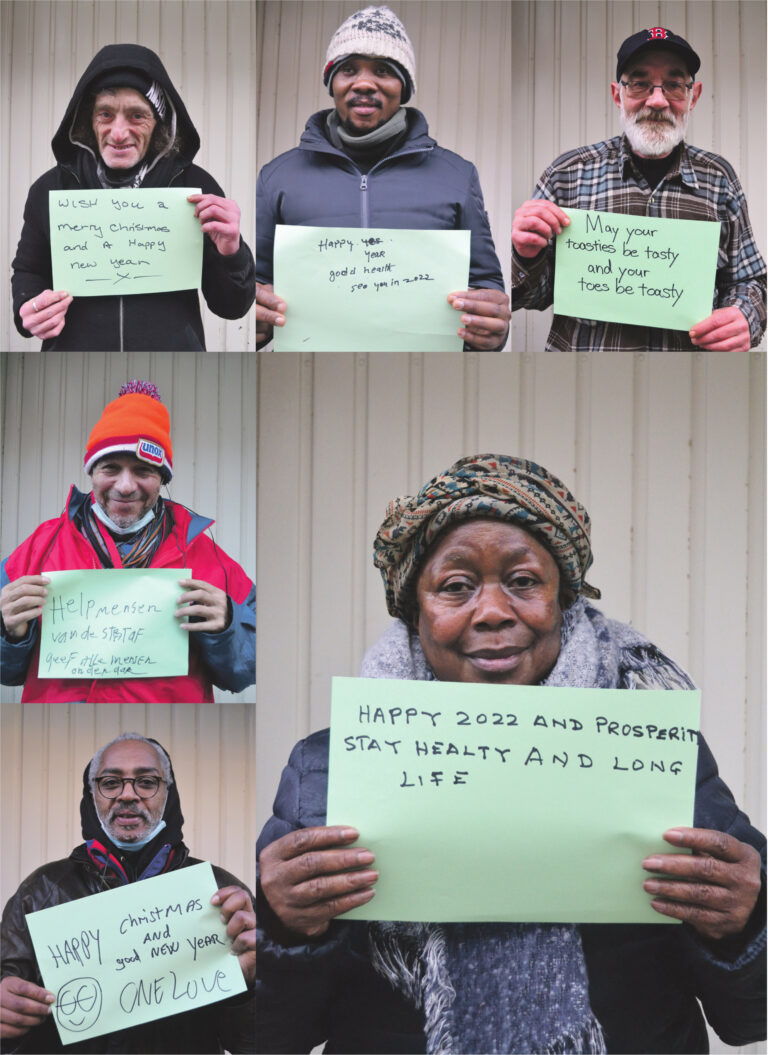 WISH YOU a
merry christmas
and A Happy
new year
X
Happy yes.
year
godd health
see you in 2022
B
May your
toasties be tasty
and your
toes be toasty
unox
Help mensen
van de STRTAF
geef alle mensen
onderdak
HAPPY 2022 AND PROSPERIT
STAY HEALTY AND LONG
LIFE
HAPPY CHRISTMAS
AND
good NEW YEAR
ONE LOVE